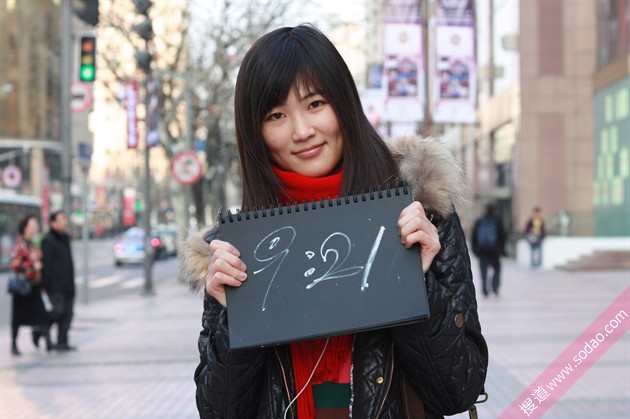 9:21
搜道 www.sodao.com